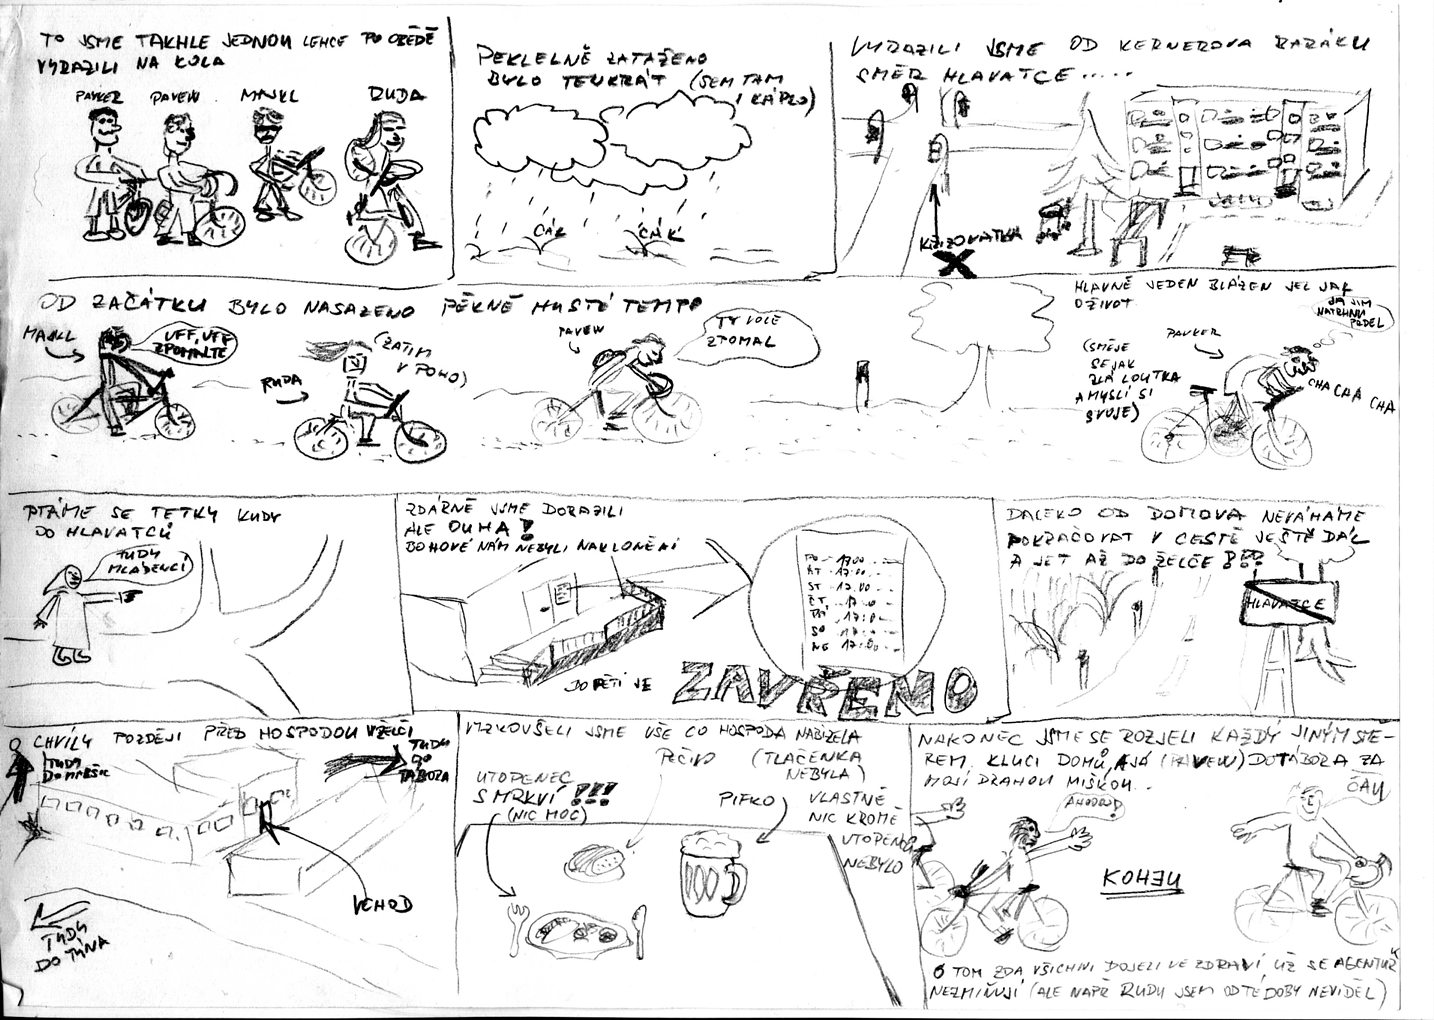 TO JSME TAKHLE JEDNOU LEHCE PO OBĚDĚ
VYRAZILI NA KOLA
PAVKER
PAVEW
MAJKL
RUDA
PEKELNĚ ZATAŽENO
BYLO TENKRÁT (SEM TAM
I KÁPLO)
CÁK
CÁK
VYRAZILI JSME OD KERNEROVA BARÁKU
SMĚR HLAVATCE.....
KŘIŽOVATKA
X
OD ZAČÁTKU BYLO NASAZENO PĚKNĚ HUSTÉ TEMPO
MAJKL
UFF, UFF
ZPOMALTE
RUDA
(ZATIM
V POHO)
PAVEW
TY VOLE
ZPOMAL
HLAVNĚ JEDEN BLÁZEN JEL JAK
O ŽIVOT
JÁ JIM
NATRHNU
PRDEL
PAVKER
(SMĚJE
SE JAK
ZLÁ LOUTKA
A MYSLÍ SI
SVOJE)
CHA CHA CHA
PTÁME SE TETKY KUDY
DO HLAVATCŮ
TUDY
MLÁDENCI
ZDÁRNĚ JSME DORAZILI
ALE OUHA!
BOHOVÉ NÁM NEBYLI NAKLONĚNI
PO - 17:00 -
ÚT - 17:00 -
ST - 17:00 -
ČT - 17:00 -
PÁ - 17:00 -
SO - 17:00 -
NE - 17:00 -
DO PĚTI JE
ZAVŘENO
DALEKO OD DOMOVA NEVÁHÁME
POKRAČOVAT V CESTĚ JEŠTĚ DÁL
A JET AŽ DO ŽELČE !!!
HLAVATCE
CHVÍLI POZDĚJI PŘED HOSPODOU V ŽELČI
TUDY
TUDY
DO
TÁBORA
VCHOD
TUDY
DO TÝNA
VYZKOUŠELI JSME VŠE CO HOSPODA NABÍZELA
PEČIVO
(TLAČENKA
NEBYLA)
UTOPENEC
S MRKVÍ !!!
(NIC MOC)
PIFKO
VLASTNĚ
NIC KROMĚ
UTOPENCŮ
NEBYLO
NAKONEC JSME SE ROZJELI KAŽDÝ JINÝM SMĚ-
REM. KLUCI DOMŮ, A JÁ (PAVEW) DO TÁBORA ZA
MOJÍ DRAHOU MIŠKOU.
AHOOOJ!
ČAU
KONEC
O TOM ZDA VŠICHNI DOJELI VE ZDRAVÍ UŽ SE AGENTUŘI
NEZMIŇUJÍ (ALE NAPŘ RUDU JSEM OD TÉ DOBY NEVIDĚL)